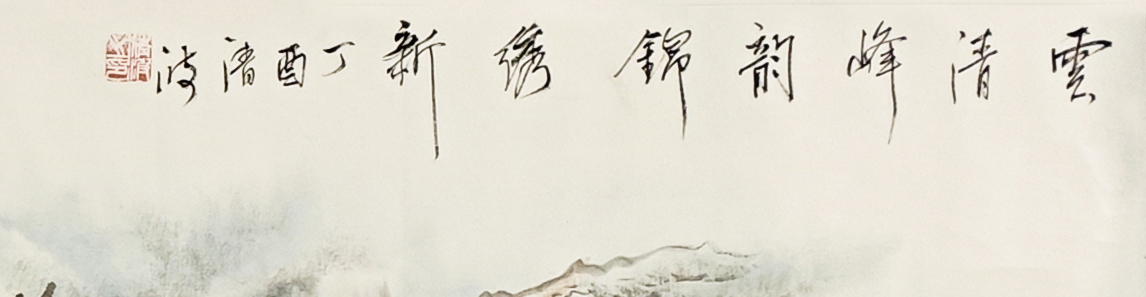 雲清峰韵錦绣新丁酉清波